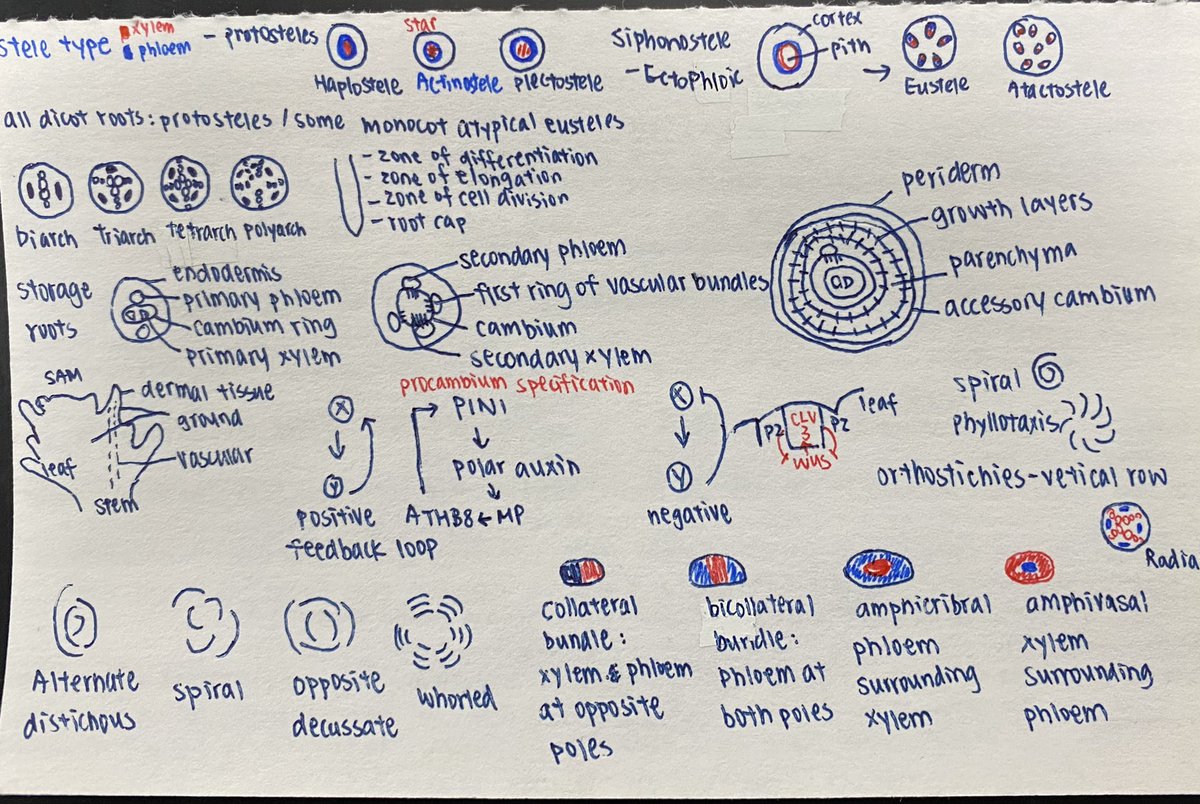 stele type xylem phloem - protosteles
Haplostele
star
Actinostele
plectostele
Siphonostele
- Ectophloic
cortex
pith
Eustele
Atactostele
all dicot roots: protosteles / some monocot atypical eusteles
biarch
triarch
tetrarch
polyarch
- zone of differentiation
- zone of elongation
- zone of cell division
- root cap
periderm
growth layers
parenchyma
accessory cambium
storage
roots
endodermis
primary phloem
cambium ring
primary xylem
secondary phloem
first ring of vascular bundles
cambium
secondary xylem
SAM
dermal tissue
ground
vascular
leaf
stem
X
Y
positive
feedback loop
procambium specification
PIN1
polar auxin
ATHB8 ← MP
X
Y
negative
P2
CLV
3
P2
WUS
leaf
spiral
phyllotaxis
orthostichies - vetical row
Radia
Alternate
distichous
spiral
opposite
decussate
whorled
collateral
bundle:
xylem & phloem
at opposite
poles
bicollateral
bundle:
phloem at
both poles
amphicribral
phloem
surrounding
xylem
amphivasal
xylem
surrounding
phloem